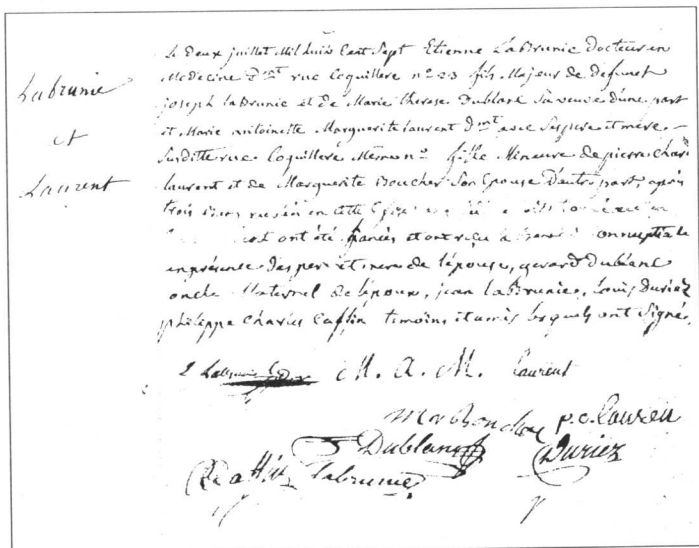 Labrunie
et
Laurent
Le deux juillet Mil huit Cent Sept Etienne LaBrunie Docteur en
Medecine Dmt rue Coquillere no 23 fils Majeur de defunct
joseph laBrunie et de Marie therese Dublanc Sa veuve d'une part
et Marie antoinette Marguerite laurent dmt avec Ses pere et mere
Susditte rue Coquillere Meme no fille Mineure de pierre Charles
laurent et de Marguerite Boucher Son Epouse D'autre part, après
trois Bans en cette
ont été fiancés et ont reçu la nuptiale
en présence des pere et mere de l'épouse, gerard Dublanc
oncle Maternel de l'époux, jean laBrunie, Louis Duriez
philippe Charles Caffin temoins et amis lesquels ont Signé.
M. A. M. laurent
p. c. laurent
Dublanc Duriez
labrunie